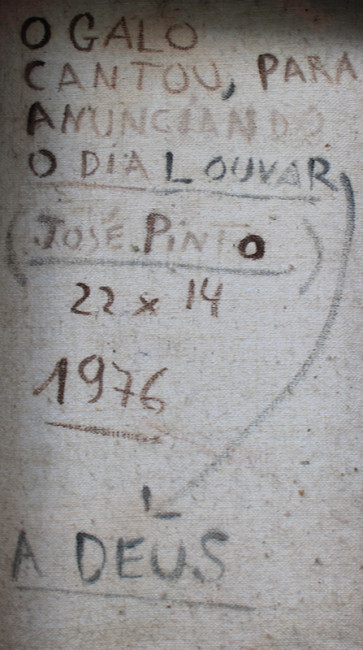 O GALO
CANTOU, PARA
ANUNCIANDO
O DIA LOUVAR
(JOSÉ PINTO)
22 x 14
1976
A DEUS